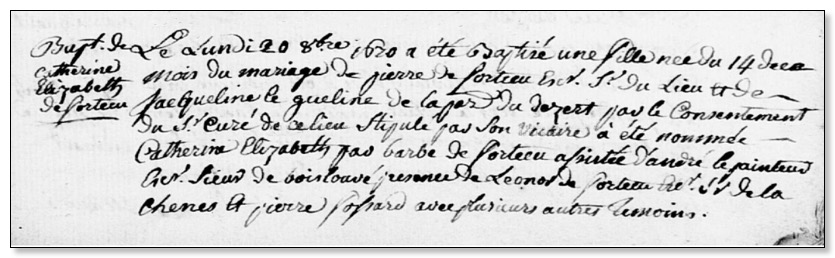 Bapt. de
Catherine
Elizabeth
de Sorteu
Le Lundi 20 8bre 1670 a été Baptisé une fille née du 14 de ce
mois du mariage de pierre de Sorteu Esc. Sr. du Lieu et de
Jacqueline le gueline de la par. du dezert par le Consentement
du Sr. Curé de ce lieu Stipulé par Son Vicaire a été nommée
Catherine Elizabeth par barbe de Sorteu assistée d'andré le painteur
Esc. Sieur de boislouvé presence de Leonor de Sorteu Esc. Sr. de la
chenes Et pierre fossard avec plusieurs autres temoins.